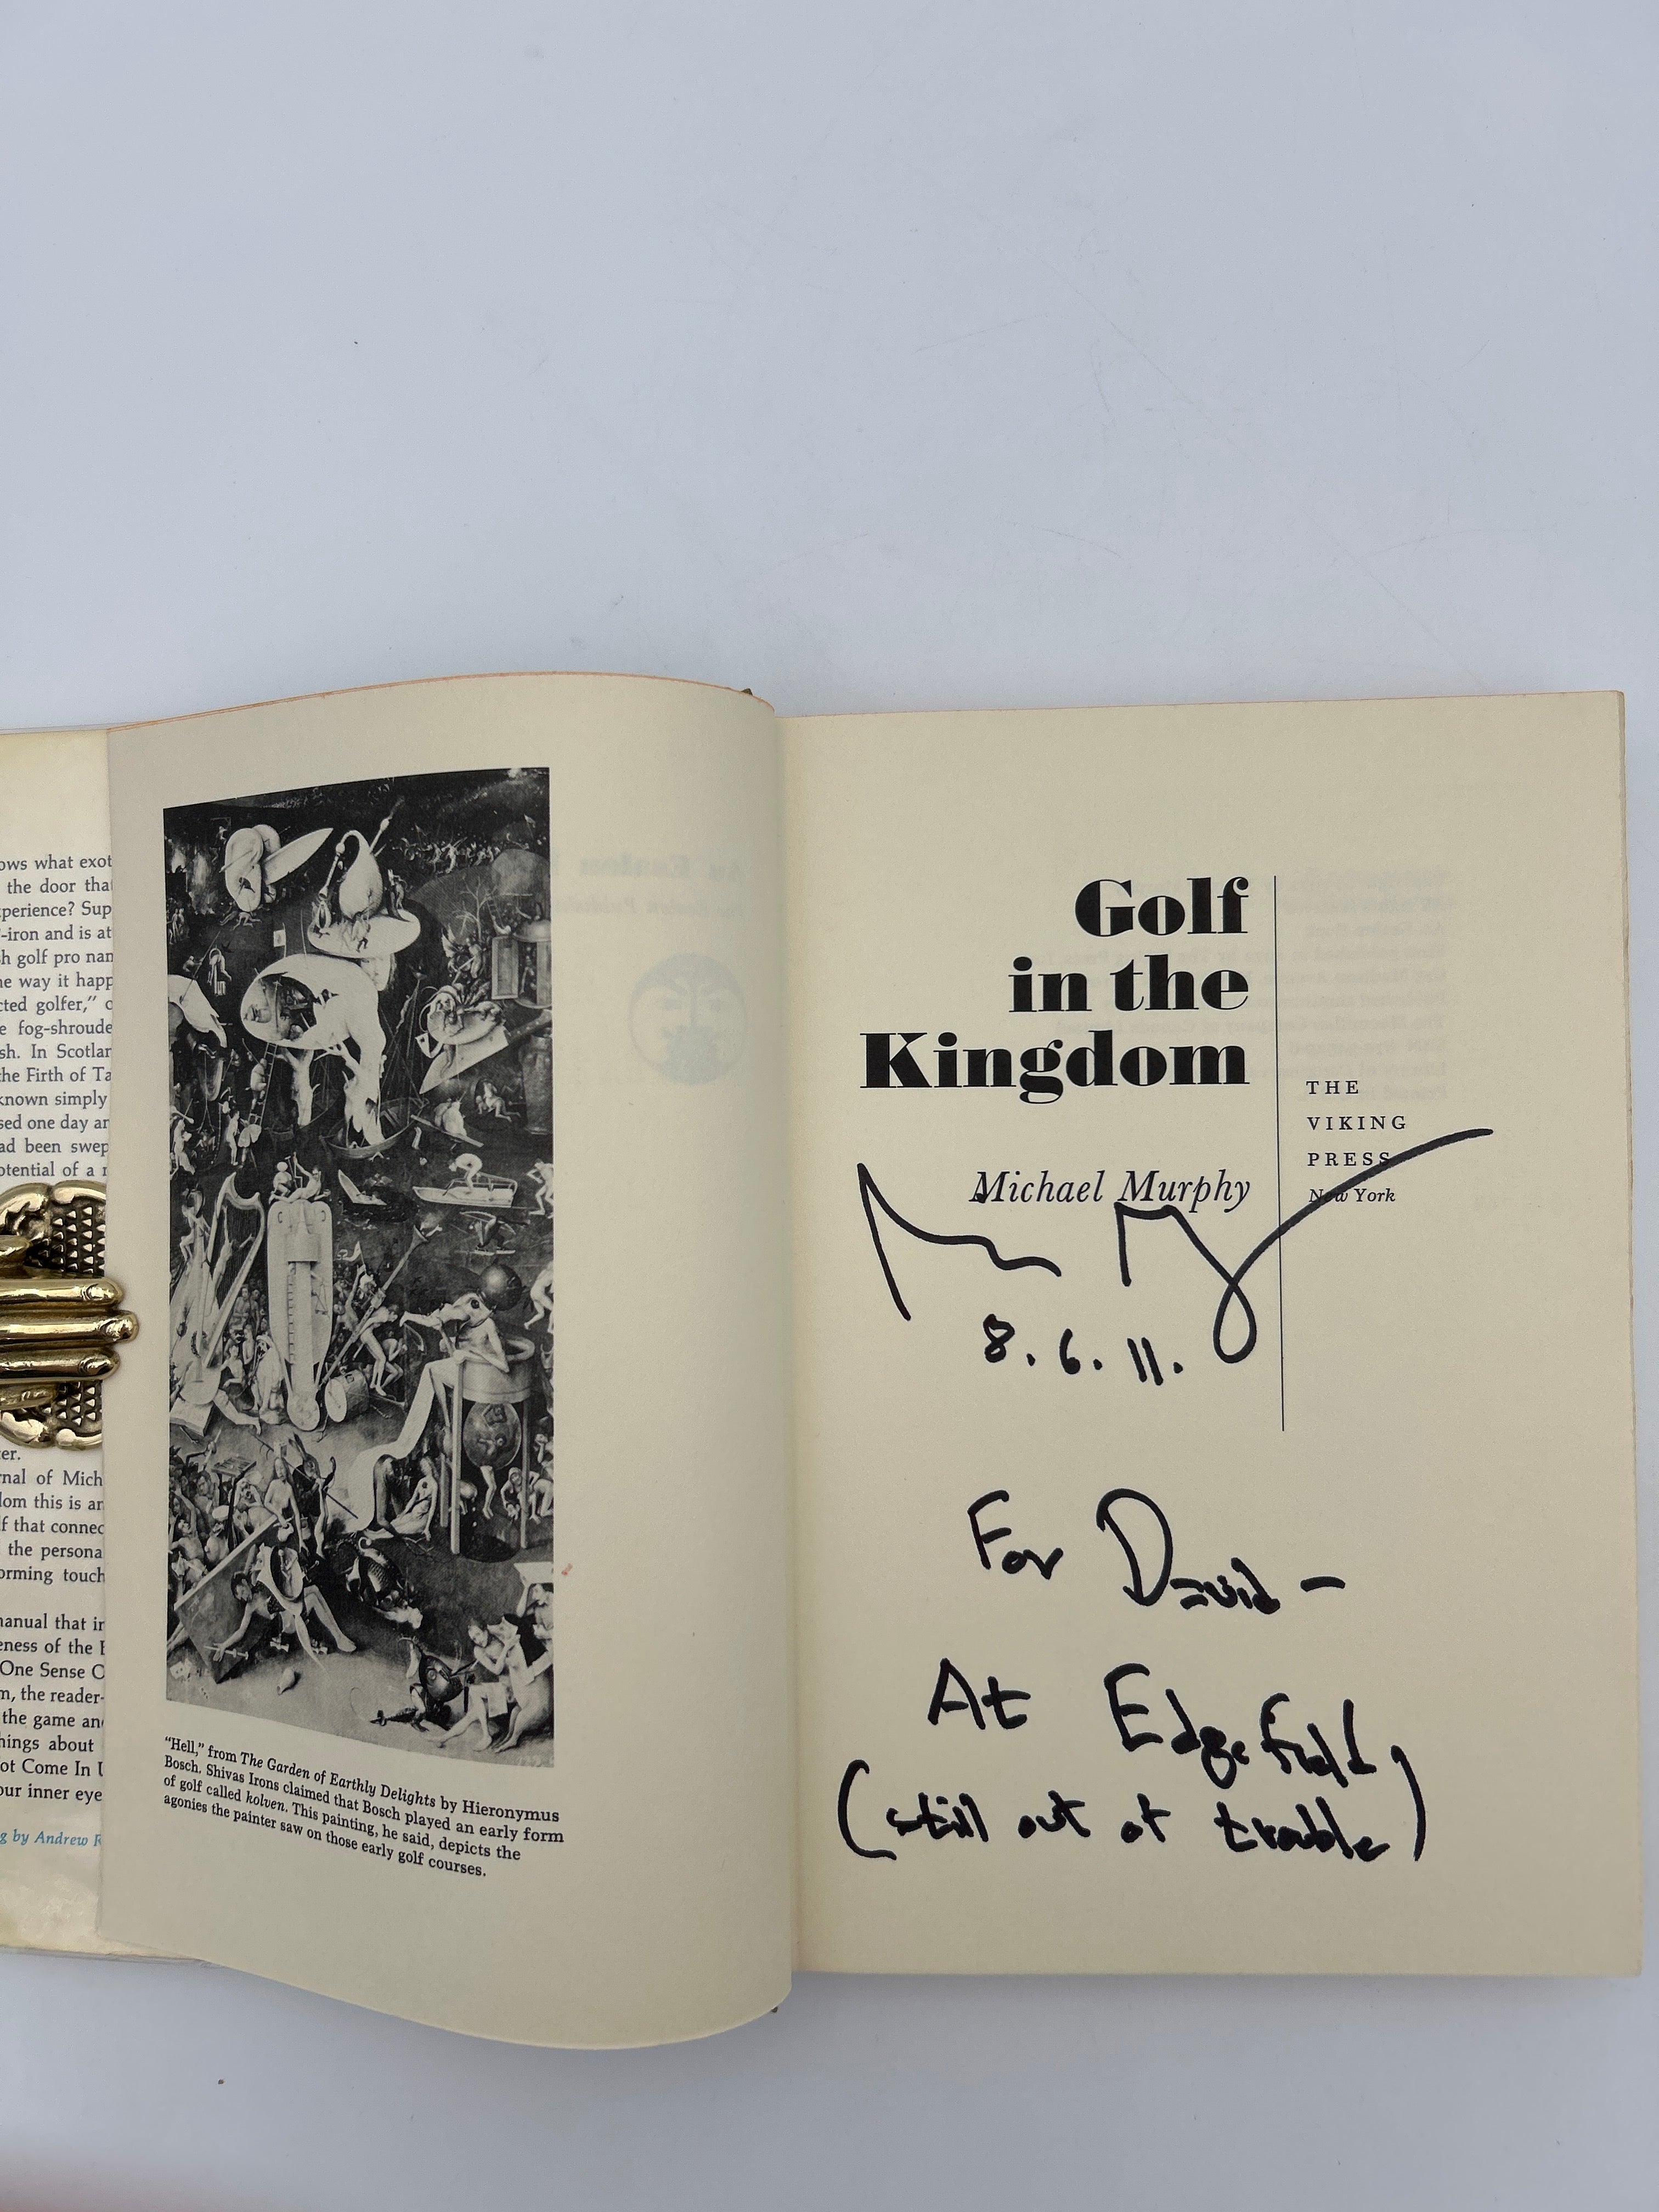 ows what exot
the door that
xperience? Sup
-iron and is at
sh golf pro nam
he way it happ
cted golfer," o
e fog-shroude
sh. In Scotlan
the Firth of Ta
known simply
sed one day an
ad been swep
otential of a r
ter.
rnal of Mich
dom this is an
f that connec
the persona
orming touch
manual that in
eness of the
One Sense O
m, the reader-
the game and
hings about
ot Come In U
our inner eye
g by Andrew R
"Hell," from The Garden of Earthly Delights by Hieronymus
Bosch. Shivas Irons claimed that Bosch played an early form
of golf called kolven. This painting, he said, depicts the
agonies the painter saw on those early golf courses.
Golf
in the
Kingdom
Michael Murphy
THE
VIKING
PRESS
New York
8.6.11.
For David –
At Edgefield
(still out of trouble)